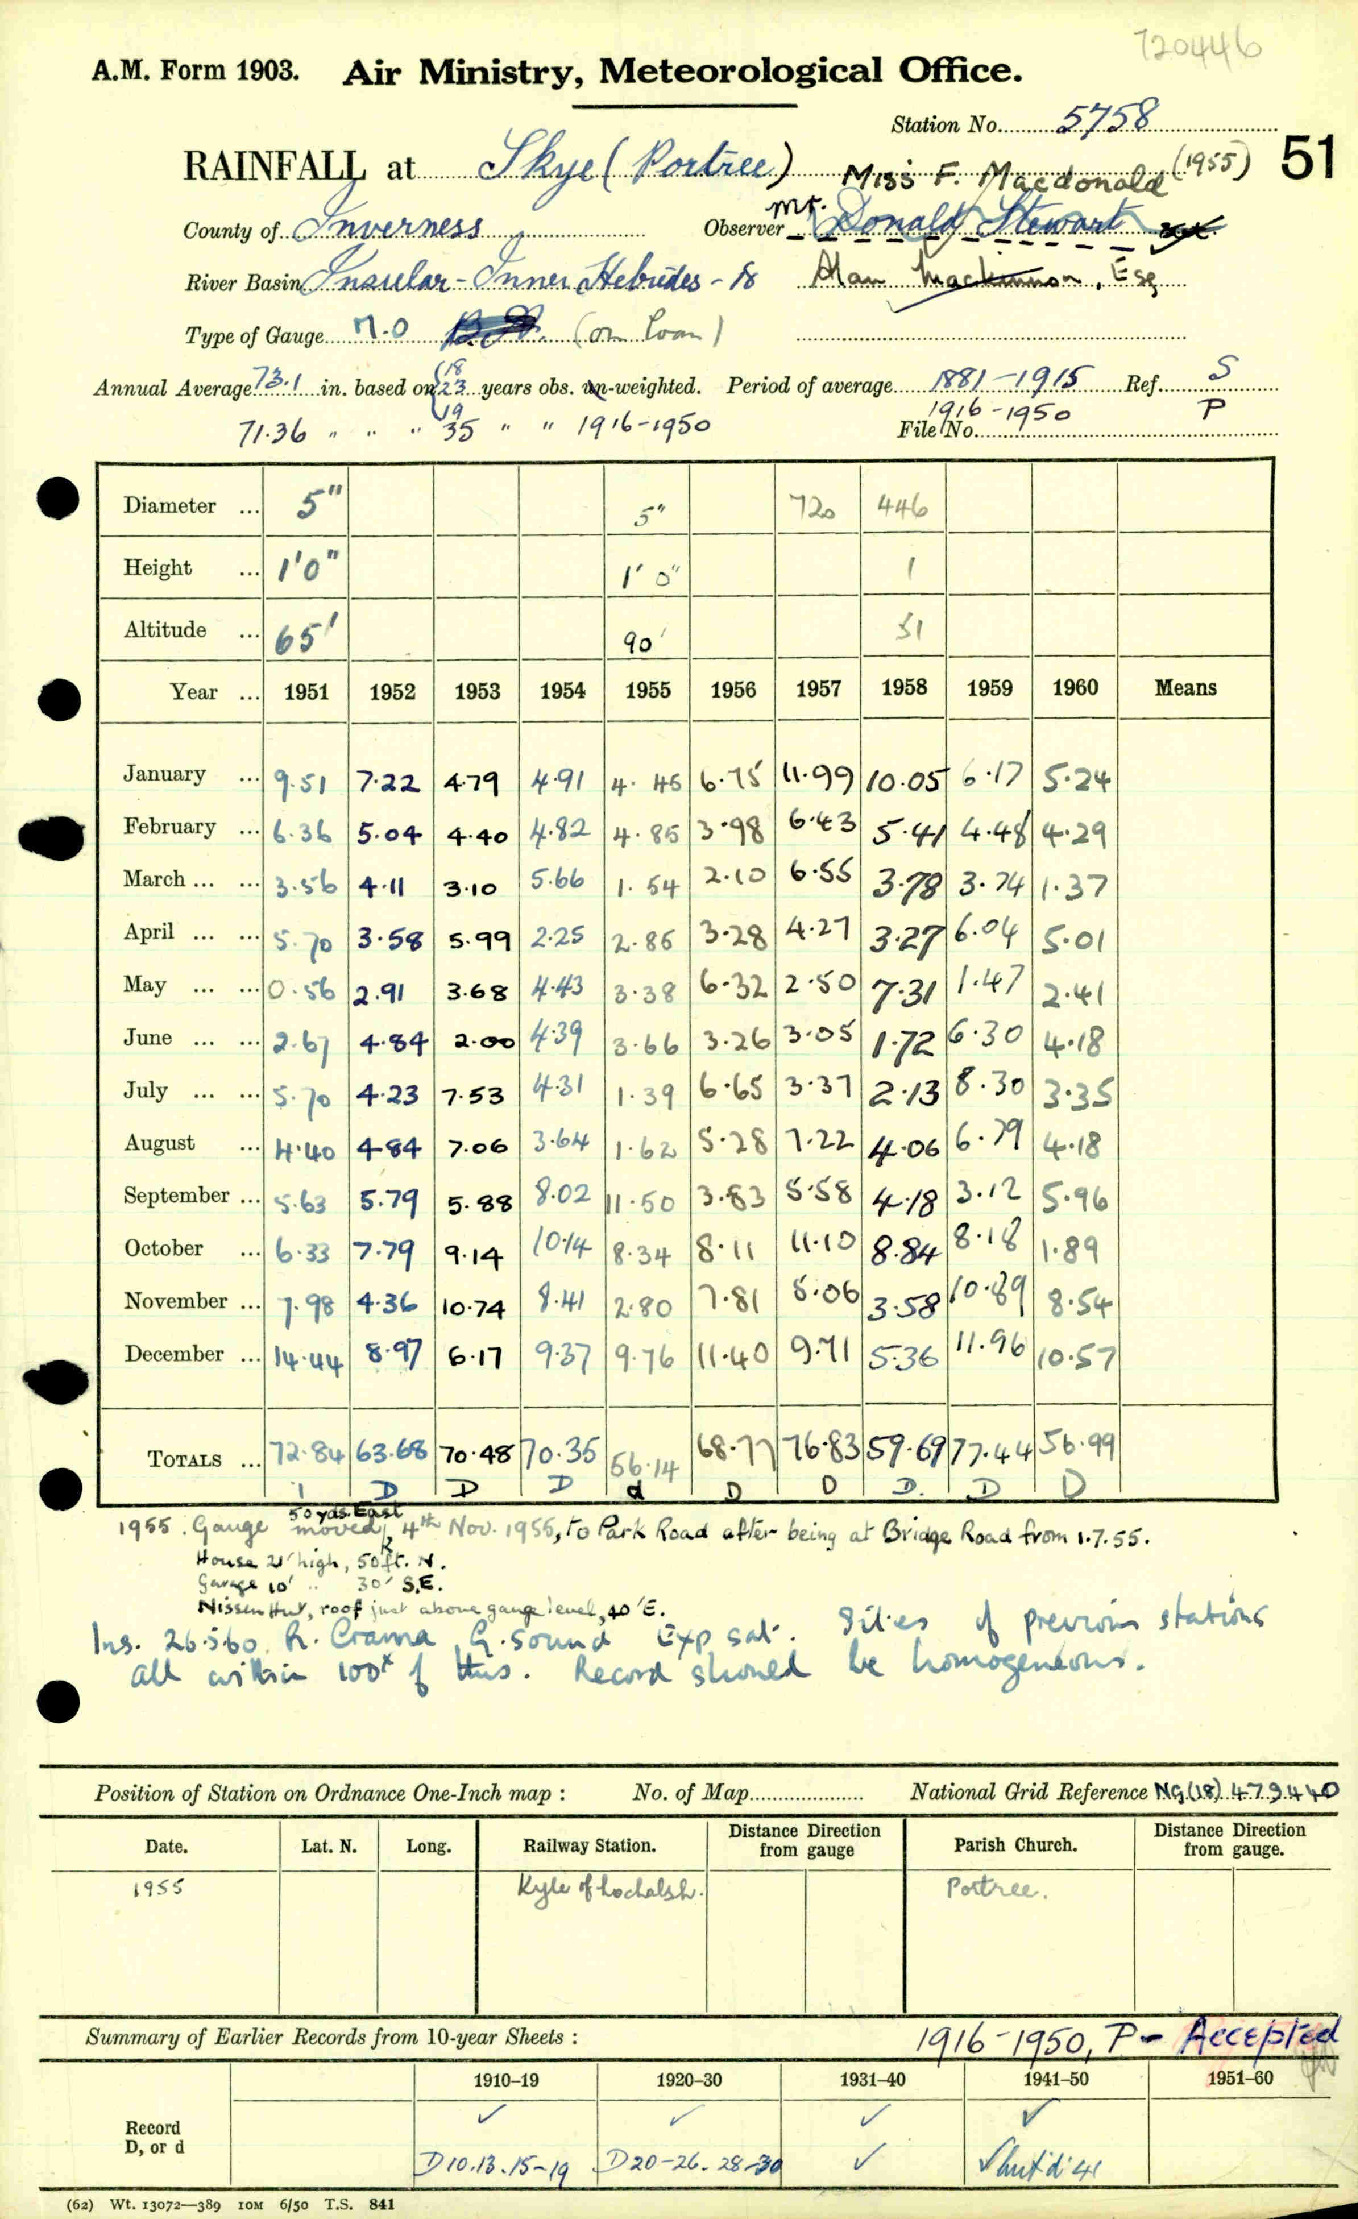 720446
A.M. Form 1903. Air Ministry, Meteorological Office.
Station No. 5758
RAINFALL at Skye (Portree) Miss F. Macdonald (1955) 51
County of Inverness Observer Mr. Donald Stewart
River Basin Insular - Inner Hebrides - S Alan Mackinnon, Esq
Type of Gauge M.O (on loan)
Annual Average 73.1 in. based on 23 years obs. un-weighted. Period of average 1881-1915 Ref. S
18
19
71.36 " " " 35 " " 1916-1950 1916-1950 P
File No.
Diameter ... 5" 5" 720 446
Height ... 1'0" 1' 0" 1
Altitude ... 65' 90' 51
Year ... 1951 1952 1953 1954 1955 1956 1957 1958 1959 1960 Means
January ... 9.51 7.22 4.79 4.91 4.46 6.75 11.99 10.05 6.17 5.24
February ... 6.36 5.04 4.40 4.82 4.85 3.98 6.43 5.41 4.48 4.29
March ... ... 3.56 4.11 3.10 5.66 1.54 2.10 6.55 3.78 3.74 1.37
April ... ... 5.70 3.58 5.99 2.25 2.86 3.28 4.27 3.27 6.04 5.01
May ... ... 0.56 2.91 3.68 4.43 3.38 6.32 2.50 7.31 1.47 2.41
June ... ... 2.67 4.84 2.00 4.39 3.66 3.26 3.05 1.72 6.30 4.18
July ... ... 5.70 4.23 7.53 4.31 1.39 6.65 3.37 2.13 8.30 3.35
August ... 4.40 4.84 7.06 3.64 1.62 5.28 7.22 4.06 6.79 4.18
September ... 5.63 5.79 5.88 8.02 11.50 3.83 5.58 4.18 3.12 5.96
October ... 6.33 7.79 9.14 10.14 8.34 8.11 11.10 8.84 8.18 1.89
November ... 7.98 4.36 10.74 8.41 2.80 7.81 5.06 3.58 10.89 8.54
December ... 14.44 8.97 6.17 9.37 9.76 11.40 9.71 5.36 11.96 10.57
TOTALS ... 72.84 63.68 70.48 70.35 56.14 68.77 76.83 59.69 77.44 56.99
1 D D D d D D D. D D
50 yds. East
1955. Gauge moved 4th Nov. 1955, to Park Road after being at Bridge Road from 1.7.55.
House 21' high, 50ft. N.
Garage 10' " 30' S.E.
Nissen Hut, roof just above gauge level, 40' E.
Ins. 26.5.60. R. Crama G. sound Exp sat. Sites of previous stations
all within 100x of this. Record should be homogeneous.
Position of Station on Ordnance One-Inch map : No. of Map National Grid Reference NG.(18) 479440
Date. Lat. N. Long. Railway Station. Distance from gauge Direction Parish Church. Distance from Direction gauge.
1955 Kyle of Lochalsh. Portree.
Summary of Earlier Records from 10-year Sheets : 1916-1950, P- Accepted
1910-19 1920-30 1931-40 1941-50 1951-60
Record ✓ ✓ ✓ ✓
D, or d D10.13.15-19 D20-26. 28-30 ✓ ✓ but d' 41
(62) Wt. 13072—389 10M 6/50 T.S. 841